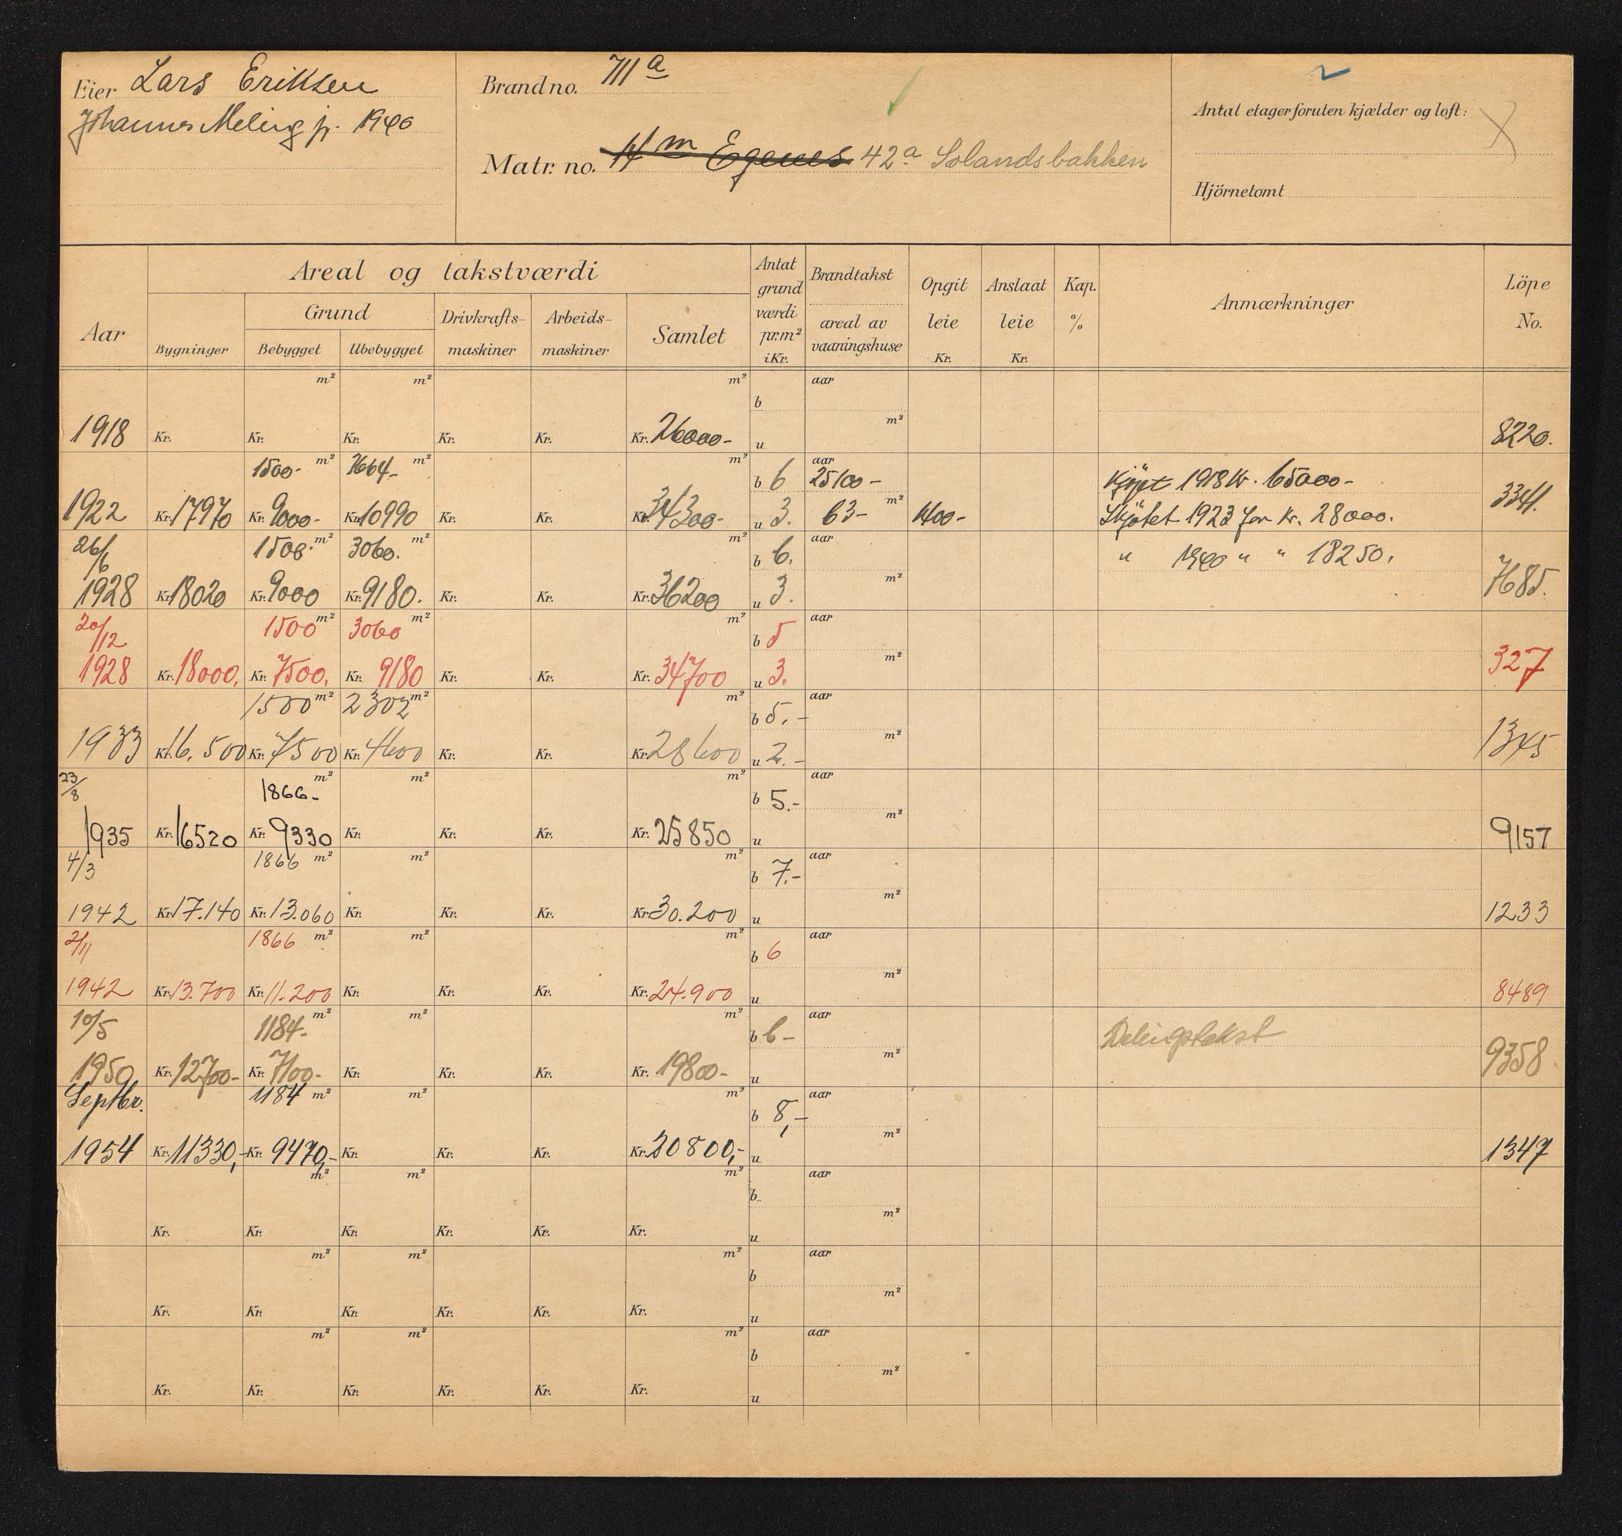 Eier Lars Eriksen
Johannes Meling jr. 1940
Brand no. 711a
Matr. no. 14m Egenes 42a Solandsbakken
Antal etager foruten kjælder og loft: 2
Hjörnetomt
Aar
Areal og takstværdi
Grund
Bygninger Bebygget Ubebygget
Drivkrafts-maskiner
Arbeids-maskiner
Samlet
Antat grund værdi pr.m² i Kr.
Brandtakst
areal av vaaningshuse
Opgit leie Kr.
Anslaat leie Kr.
Kap. %
Anmærkninger
Löpe No.
m² m² m² b aar
1918 Kr. Kr. Kr. Kr. Kr. Kr. 26000- u m² 8220.
1500- m² 3664- m² m² b 6 aar 25100- Kjøpt 1918 Kr. 65000-
1922 Kr. 17970 Kr. 9000- Kr. 10990 Kr. Kr. Kr. 34300- u 3. 63- m² 1400- Skjøtet 1923 for Kr. 28000. 3341.
26/6 1500. m² 3060. m² m² b 6. aar " 1940 " " 18250.
1928 Kr. 18020 Kr. 9000 Kr. 9180. Kr. Kr. Kr. 36200 u 3. m² 7685.
20/12 1500 m² 3060 m² m² b 5 aar
1928 Kr. 18000. Kr. 7500. Kr. 9180 Kr. Kr. Kr. 34700 u 3. m² 327
1500 m² 2302 m² m² b 5.- aar
1933 Kr. 16.500 Kr. 7500 Kr. 4600 Kr. Kr. Kr. 28600 u 2.- m² 1345
23/8 1866- m² m² m² b 5.- aar
1935 Kr. 16520 Kr. 9330 Kr. Kr. Kr. Kr. 25850 u m² 9157
4/3 1866 m² m² m² b 7.- aar
1942 Kr. 17.140 Kr. 13.060 Kr. Kr. Kr. Kr. 30.200 u m² 1233
2/11 1866 m² m² m² b 6 aar
1942 Kr. 13.700 Kr. 11.200 Kr. Kr. Kr. Kr. 24.900 u m² 8489
10/5 1184- m² m² m² b 6- aar Delingstakst
1950 Kr. 12700- Kr. 7100- Kr. Kr. Kr. Kr. 19800- u m² 9358
Septbr. 1184 m² m² m² b 8,- aar
1954 Kr. 11330,- Kr. 9470,- Kr. Kr. Kr. Kr. 20800,- u m² 1347
m² m² m² b aar
Kr. Kr. Kr. Kr. Kr. Kr. u m²
m² m² m² b aar
Kr. Kr. Kr. Kr. Kr. Kr. u m²
m² m² m² b aar
Kr. Kr. Kr. Kr. Kr. Kr. u m²